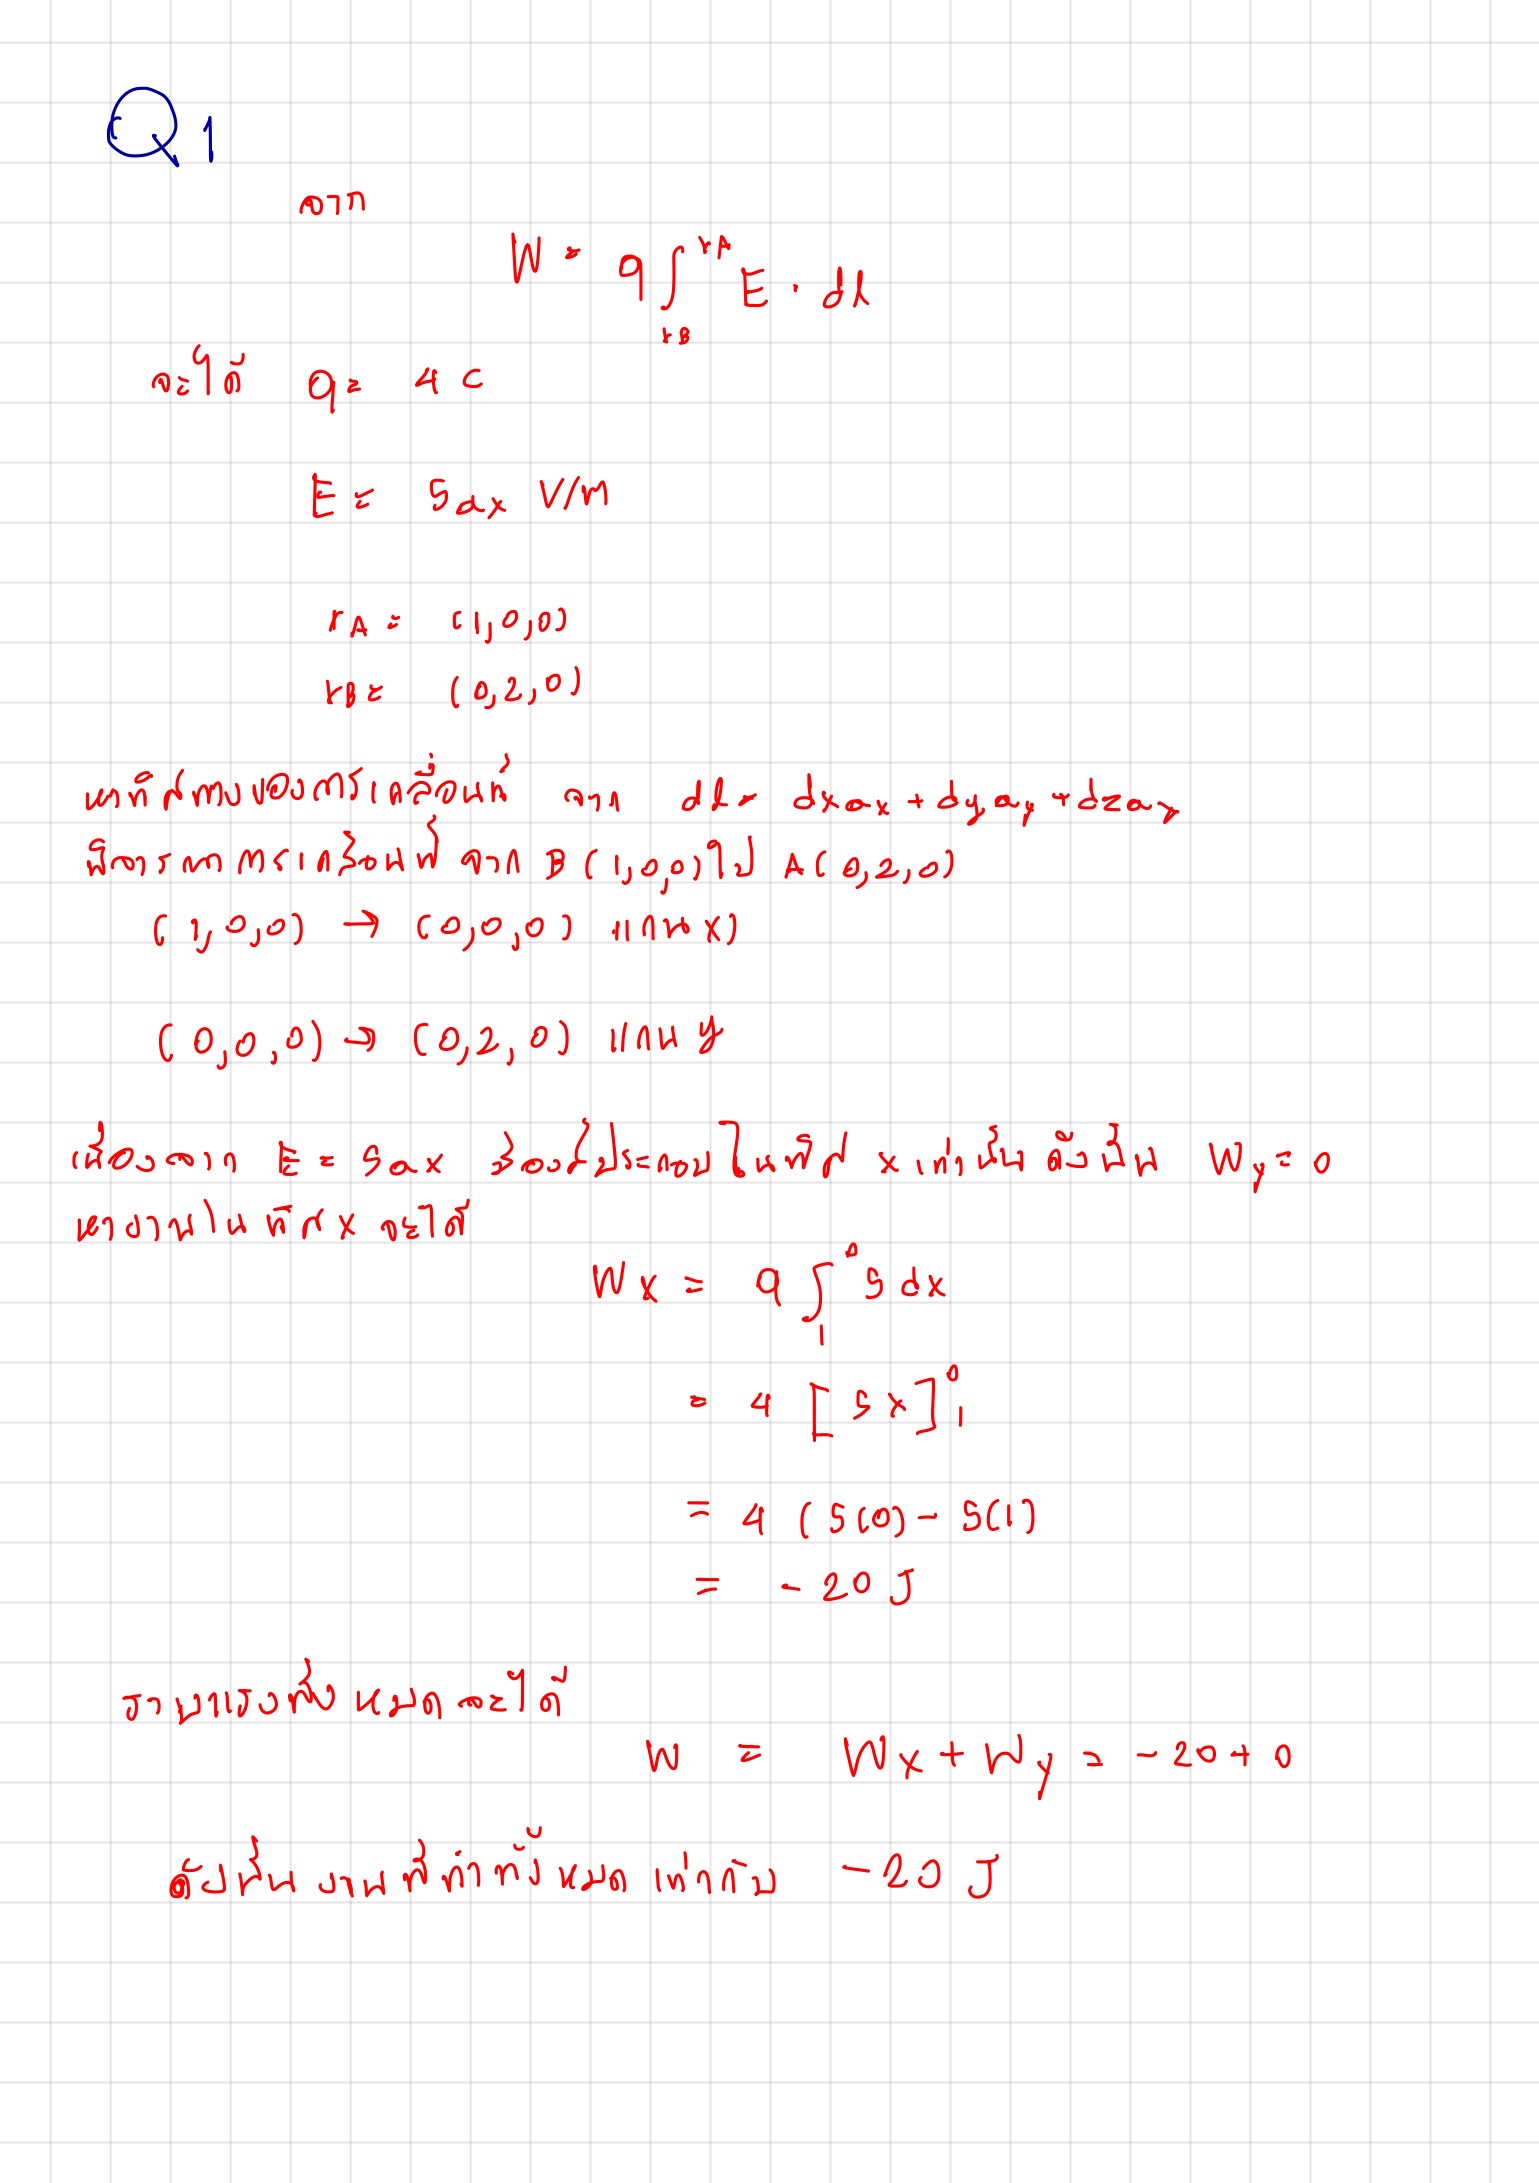 Q1
จาก
W = q ∫_{rB}^{rA} E · dl
จะได้ q = 4 C
E = 5ax V/m
rA = (1,0,0)
rB = (0,2,0)
หาทิศทางของการเคลื่อนที่ จาก dl = dxax + dyay + dzaz
พิจารณาการเคลื่อนที่ จาก B(1,0,0) ไป A(0,2,0)
(1,0,0) → (0,0,0) แกน x)
(0,0,0) → (0,2,0) แกน y
เนื่องจาก E = 5ax มีองค์ประกอบในทิศ x เท่านั้น ดังนั้น Wy = 0
หางานในทิศ x จะได้
Wx = q ∫_{1}^{0} 5 dx
= 4 [5x]_{1}^{0}
= 4 (5(0) - 5(1)
= -20 J
รวมแรงทั้งหมดจะได้
W = Wx + Wy = -20 + 0
ดังนั้น งานที่ทำทั้งหมด เท่ากับ -20 J